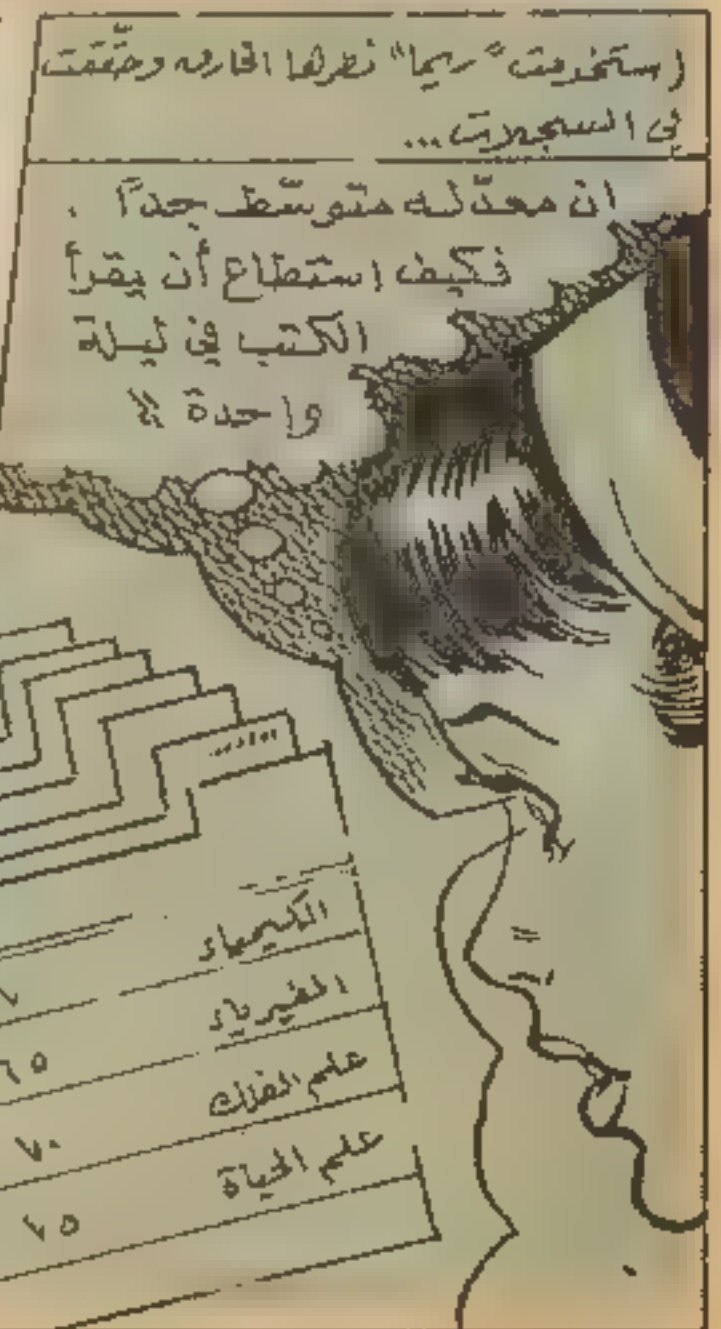 إستخدمت "ريما" نظرها الخارق ودقّقت
في السجلات...
ان معدّله متوسّط جداً .
فكيف إستطاع أن يقرأ
الكتب في ليلة
واحدة ؟!
الكيمياء
الفيزياء ٦٥
علم الفلك ٧٠
علم الحياة ٧٥